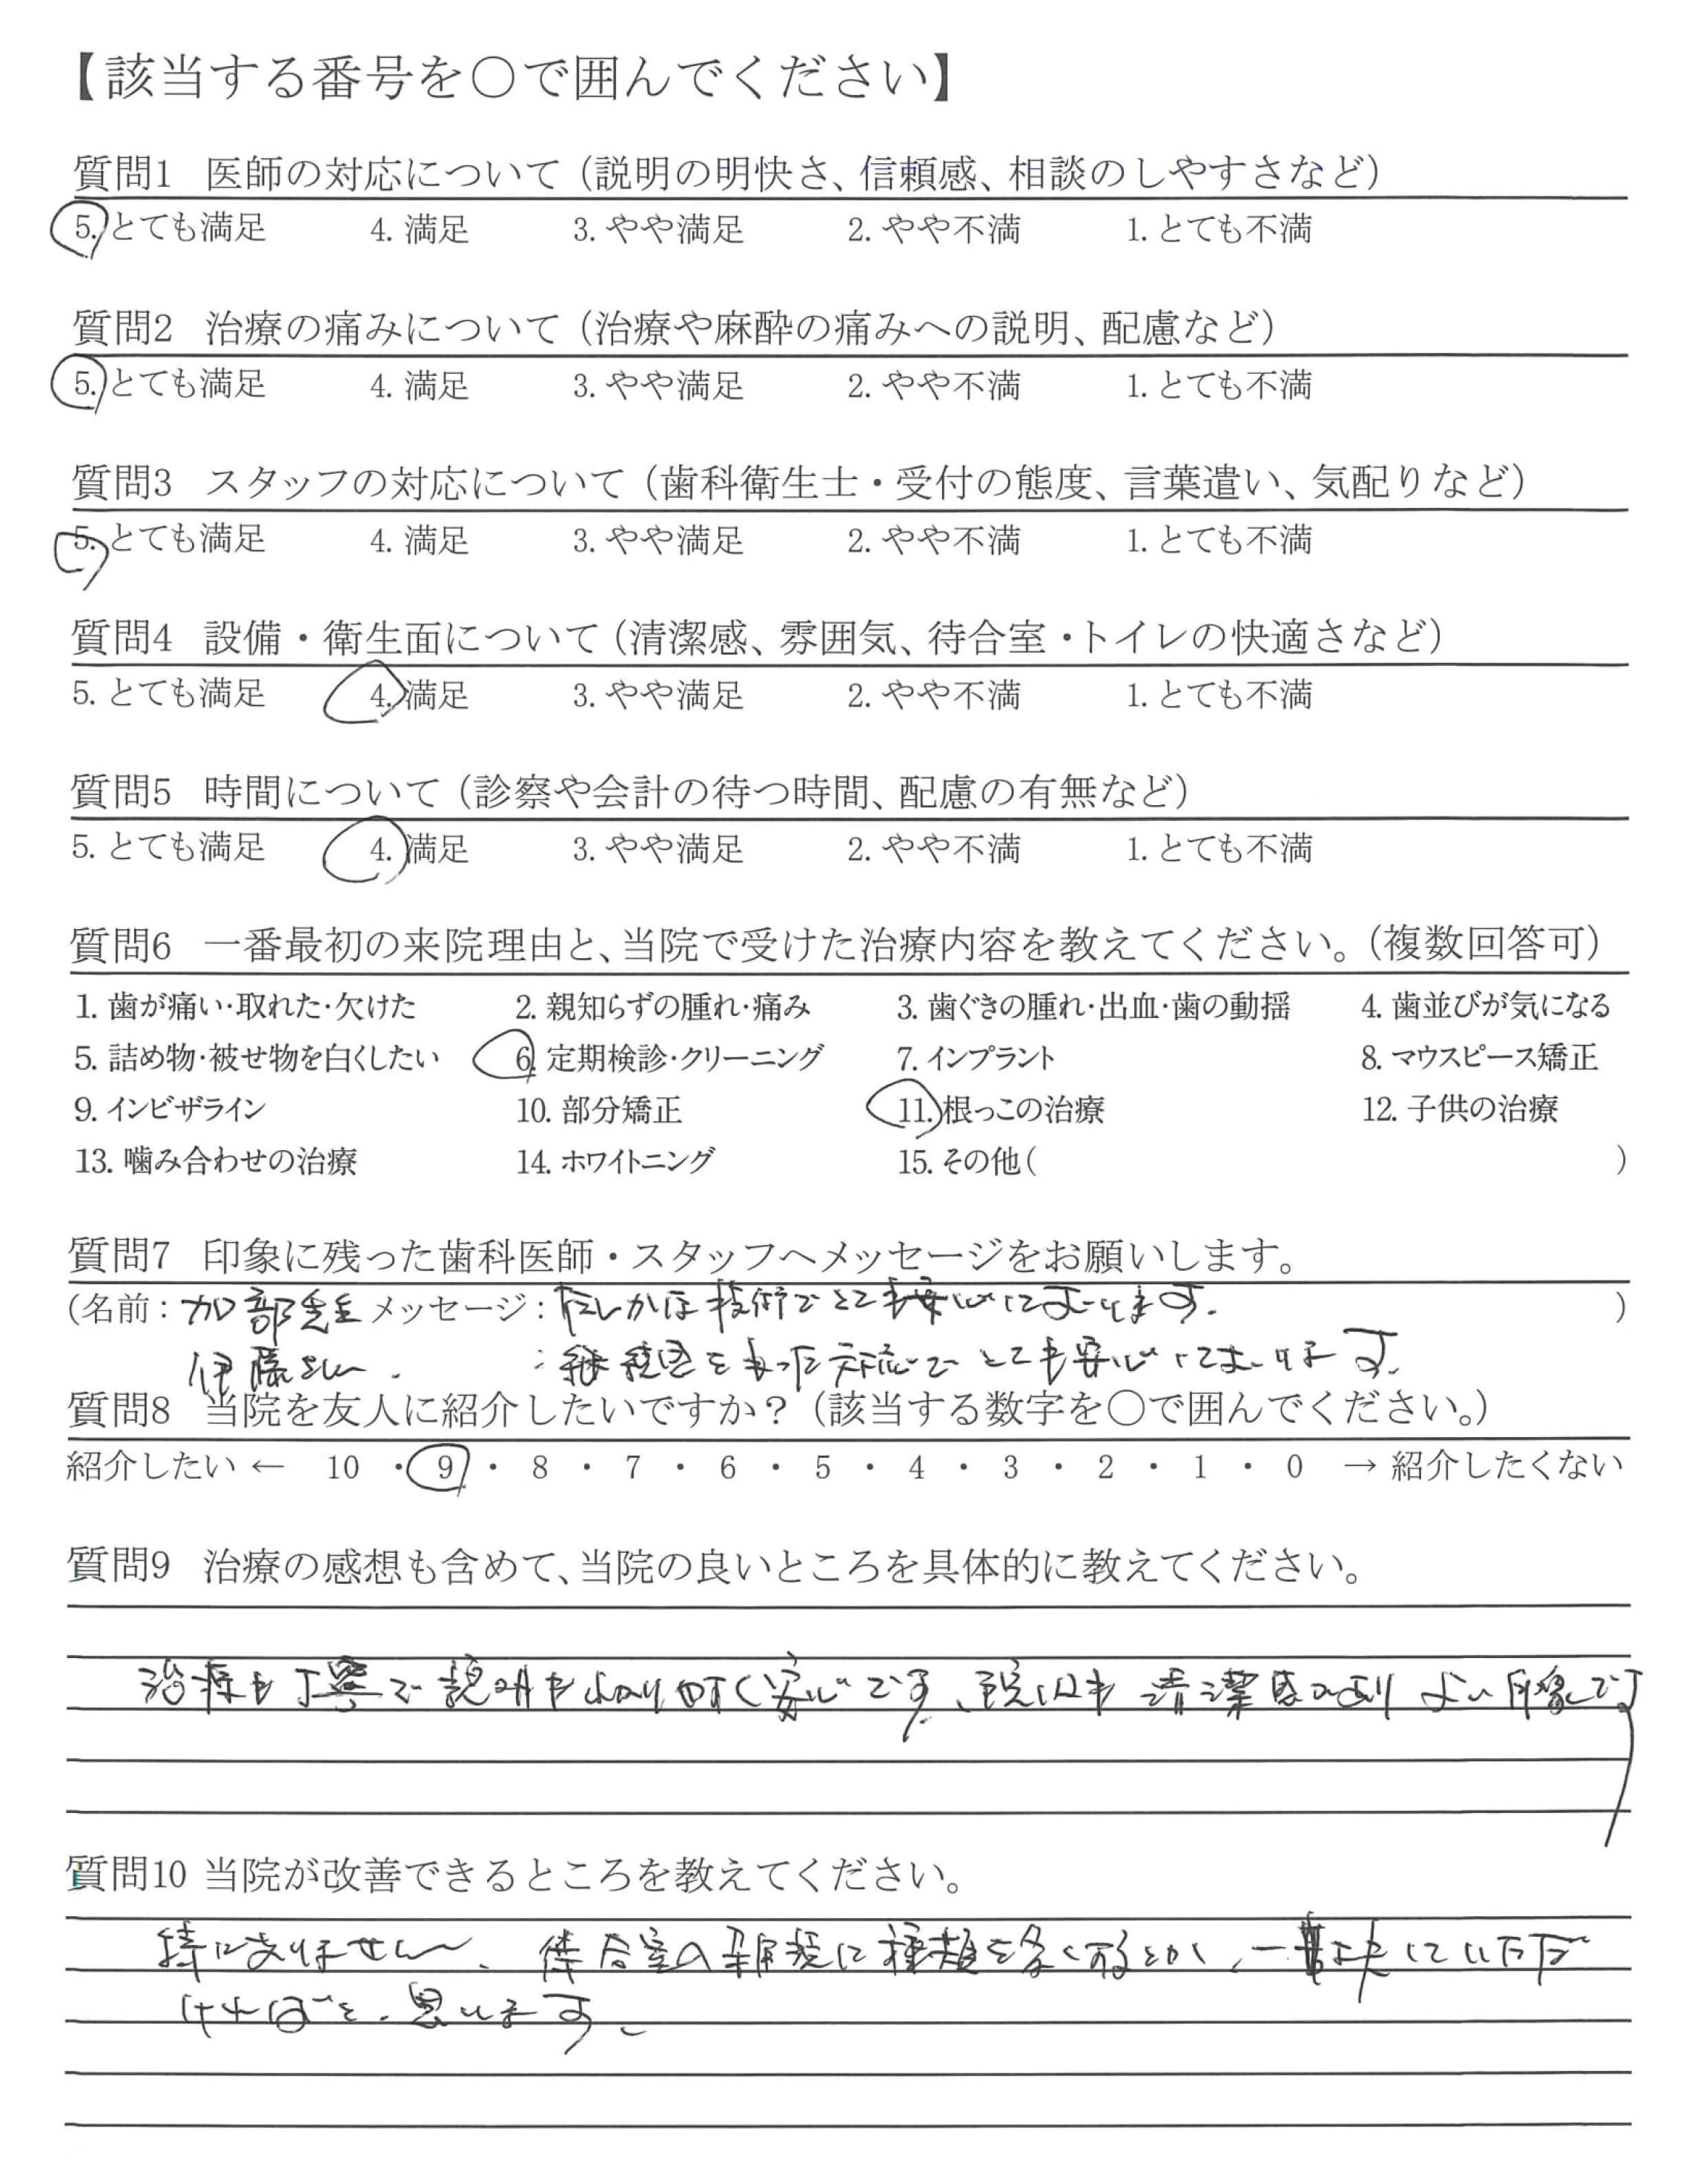 【該当する番号を〇で囲んでください】
質問1 医師の対応について（説明の明快さ、信頼感、相談のしやすさなど）
5. とても満足 4. 満足 3. やや満足 2. やや不満 1. とても不満
質問2 治療の痛みについて（治療や麻酔の痛みへの説明、配慮など）
5. とても満足 4. 満足 3. やや満足 2. やや不満 1. とても不満
質問3 スタッフの対応について（歯科衛生士・受付の態度、言葉遣い、気配りなど）
5. とても満足 4. 満足 3. やや満足 2. やや不満 1. とても不満
質問4 設備・衛生面について（清潔感、雰囲気、待合室・トイレの快適さなど）
5. とても満足 4. 満足 3. やや満足 2. やや不満 1. とても不満
質問5 時間について（診察や会計の待つ時間、配慮の有無など）
5. とても満足 4. 満足 3. やや満足 2. やや不満 1. とても不満
質問6 一番最初の来院理由と、当院で受けた治療内容を教えてください。（複数回答可）
1. 歯が痛い・取れた・欠けた 2. 親知らずの腫れ・痛み 3. 歯ぐきの腫れ・出血・歯の動揺 4. 歯並びが気になる
5. 詰め物・被せ物を白くしたい 6. 定期検診・クリーニング 7. インプラント 8. マウスピース矯正
9. インビザライン 10. 部分矯正 11. 根っこの治療 12. 子供の治療
13. 噛み合わせの治療 14. ホワイトニング 15. その他（ ）
質問7 印象に残った歯科医師・スタッフへメッセージをお願いします。
（名前：加部先生 メッセージ：たしかな技術でとても安心しております。）
伊藤さん ：をもった対応でとても安心しております。
質問8 当院を友人に紹介したいですか？（該当する数字を〇で囲んでください。）
紹介したい ← 10 ・ 9 ・ 8 ・ 7 ・ 6 ・ 5 ・ 4 ・ 3 ・ 2 ・ 1 ・ 0 → 紹介したくない
質問9 治療の感想も含めて、当院の良いところを具体的に教えてください。
治療も丁寧で説明もわかり安心です。院内も清潔感があり よい印象です
質問10 当院が改善できるところを教えてください。
特にありません。待合室の種類を多く
ければと、思います。